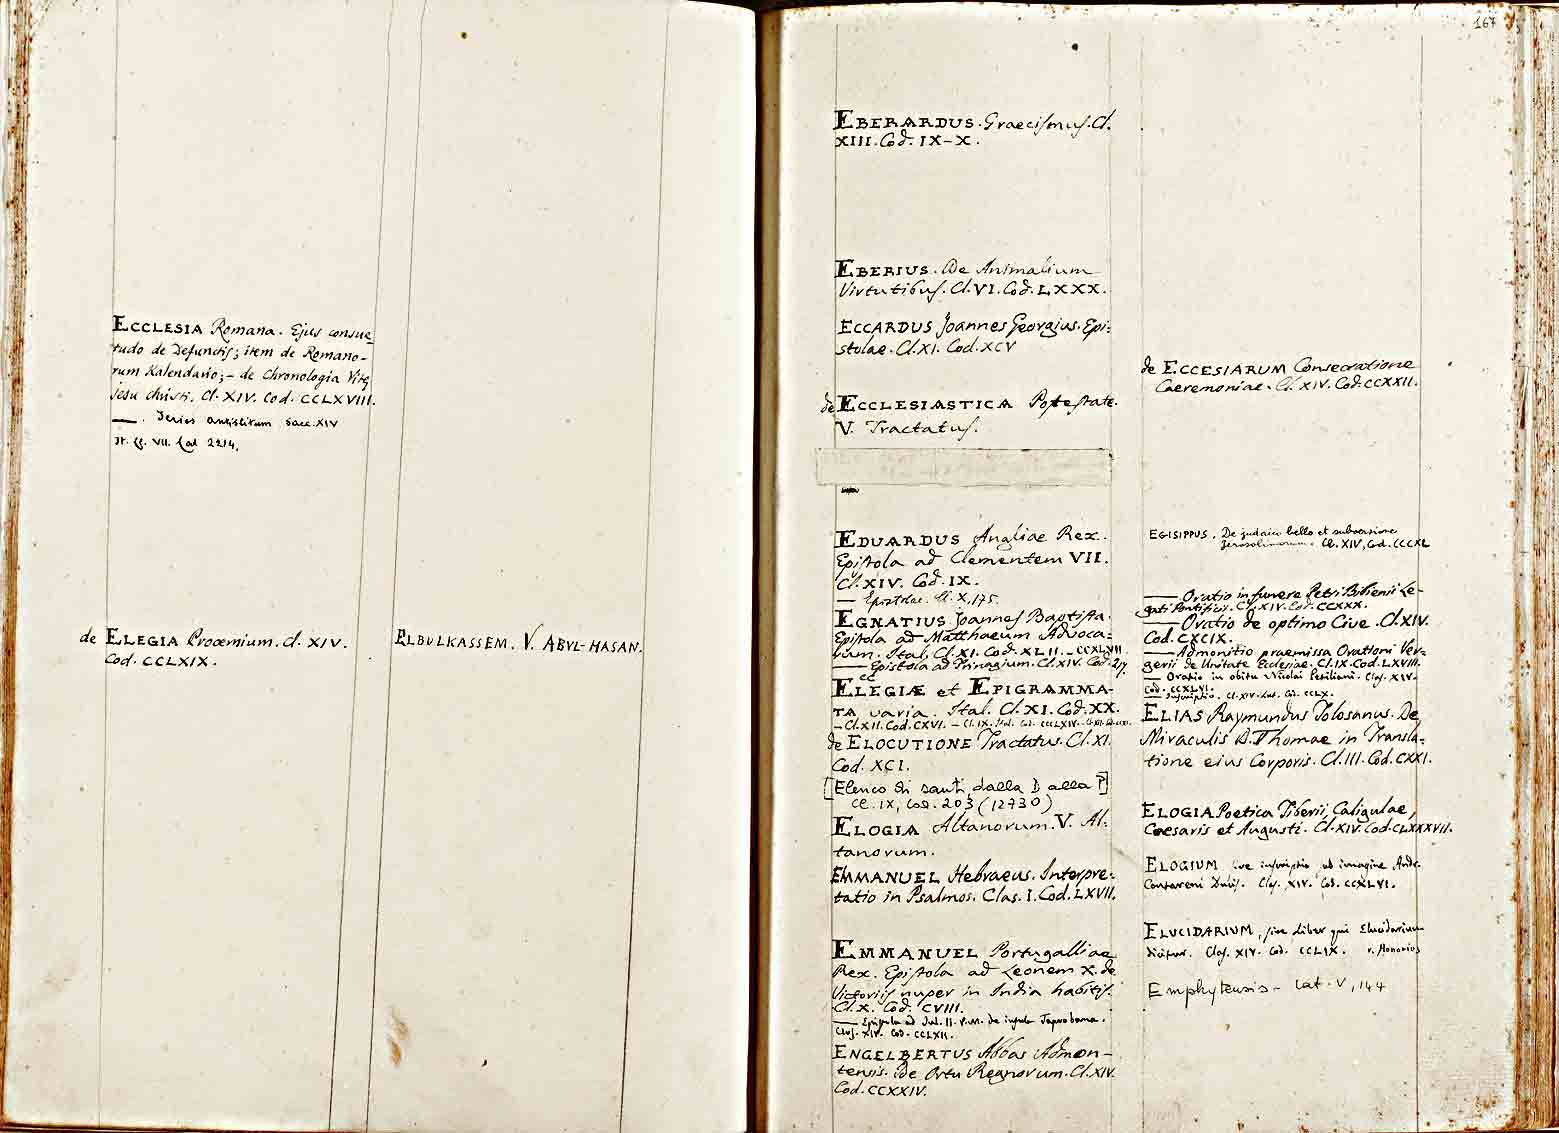 ECCLESIA Romana. Ejus consue_
tudo de Defunctis; item de Romano-
rum Kalendario; - de Chronologia Vitę
Jesu Christi. Cl. XIV. Cod. CCLXVIII.
—. Series antistitum saec. XIV
It. Cl. VII. Cod 2214.
de ELEGIA Prooemium. Cl. XIV.
Cod. CCLXIX.
ELBULKASSEM. V. ABUL-HASAN.
167
EBERARDUS. Graecismus. Cl.
XIII. Cod. IX-X.
EBERIUS. De Animalium
Virtutibus. Cl. VI. Cod. LXXX.
ECCARDUS Joannes Georgius. Epi:
stolae. Cl. XI. Cod. XCV
de ECCLESIASTICA Potestate.
V. Tractatus.
EDUARDUS Angliae Rex.
Epistola ad Clementem VII.
Cl. XIV. Cod. IX.
— Epistolae. Cl. X, 175.
EGNATIUS Joannes Baptista.
Epistola ad Matthaeum Advoca-
tum. Ital. Cl. XI. Cod. XLII. - CCXLVII
— Epistola ad Trinagium. Cl. XIV. Cod. 217.
ELEGIÆ et EPIGRAMMA-
TA varia. Ital. Cl. XI. Cod. XX.
- Cl. XII. Cod. CXVI. - Cl. IX. Ital. Cod. CCLXIV.
de ELOCUTIONE Tractatus. Cl. XI.
Cod. XCI.
[Elenco di santi, dalla D alla P]
Cl. IX, Cod. 203 (12730)
ELOGIA Altanorum. V. Al-
tanorum.
EMMANUEL Hebraeus. Interpre:
tatio in Psalmos. Clas. I. Cod. LXVII.
EMMANUEL Portugalliae
Rex. Epistola ad Leonem X. de
Victoriis nuper in India habitis.
Cl. X. Cod. CVIII.
— Epistola ad Jul. II. P.M. de insula Taprobana.
Clas. XIV. Cod. CCLXII.
ENGELBERTUS Abbas Admon-
tensis. De Ortu Regnorum. Cl. XIV.
Cod. CCXXIV.
de ECCESIARUM Consecratione
Caeremoniae. Cl. XIV. Cod. CCXXII.
EGISIPPUS. De judaico bello et subversione
Jerosolimorum. Cl. XIV, Cod. CCCXL
— Oratio in funere Petri Bibienii Le-
gati Pontificii. Cl. XIV. Cod. CCXXX.
— Oratio de optimo Cive. Cl. XIV.
Cod. CXCIX.
— Admonitio praemissa Orationi Ver-
gerii de Unitate Ecclesiae. Cl. IX. Cod. LXVIII.
— Oratio in obitu Nicolai Petiliani. Clas. XIV.
Cod. CCXLVI.
— Inscriptio. Cl. XIV. Lat. Cod. CCLX.
ELIAS Raymundus Tolosanus. De
Miraculis D. Thomae in Transla-
tione eius Corporis. Cl. III. Cod. CXXI.
ELOGIA Poetica Tiberii, Caligulae,
Caesaris et Augusti. Cl. XIV. Cod. CLXXXVII.
ELOGIUM sive inscriptio ad imagine Andr.
Contareni Ducis. Clas. XIV. Cod. CCXLVI.
ELUCIDARIUM, sive Liber qui Elucidarium
dicitur. Clas. XIV. Cod. CCLIX. v. Honorius
Emphyteusis - Lat. V, 144